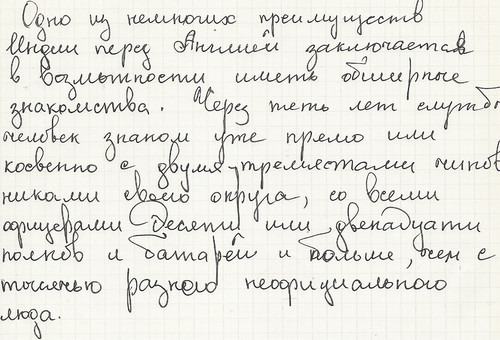 Одно из немногих преимуществ
Индии перед Англией заключается
в возможности иметь обширные
знакомства. Через пять лет службы
человек знаком уже прямо или
косвенно с двумя-тремястами чинов
никами своего округа, со всеми
офицерами десяти или двенадцати
полков и батарей и больше, чем с
тысячью разного неофициального
люда.